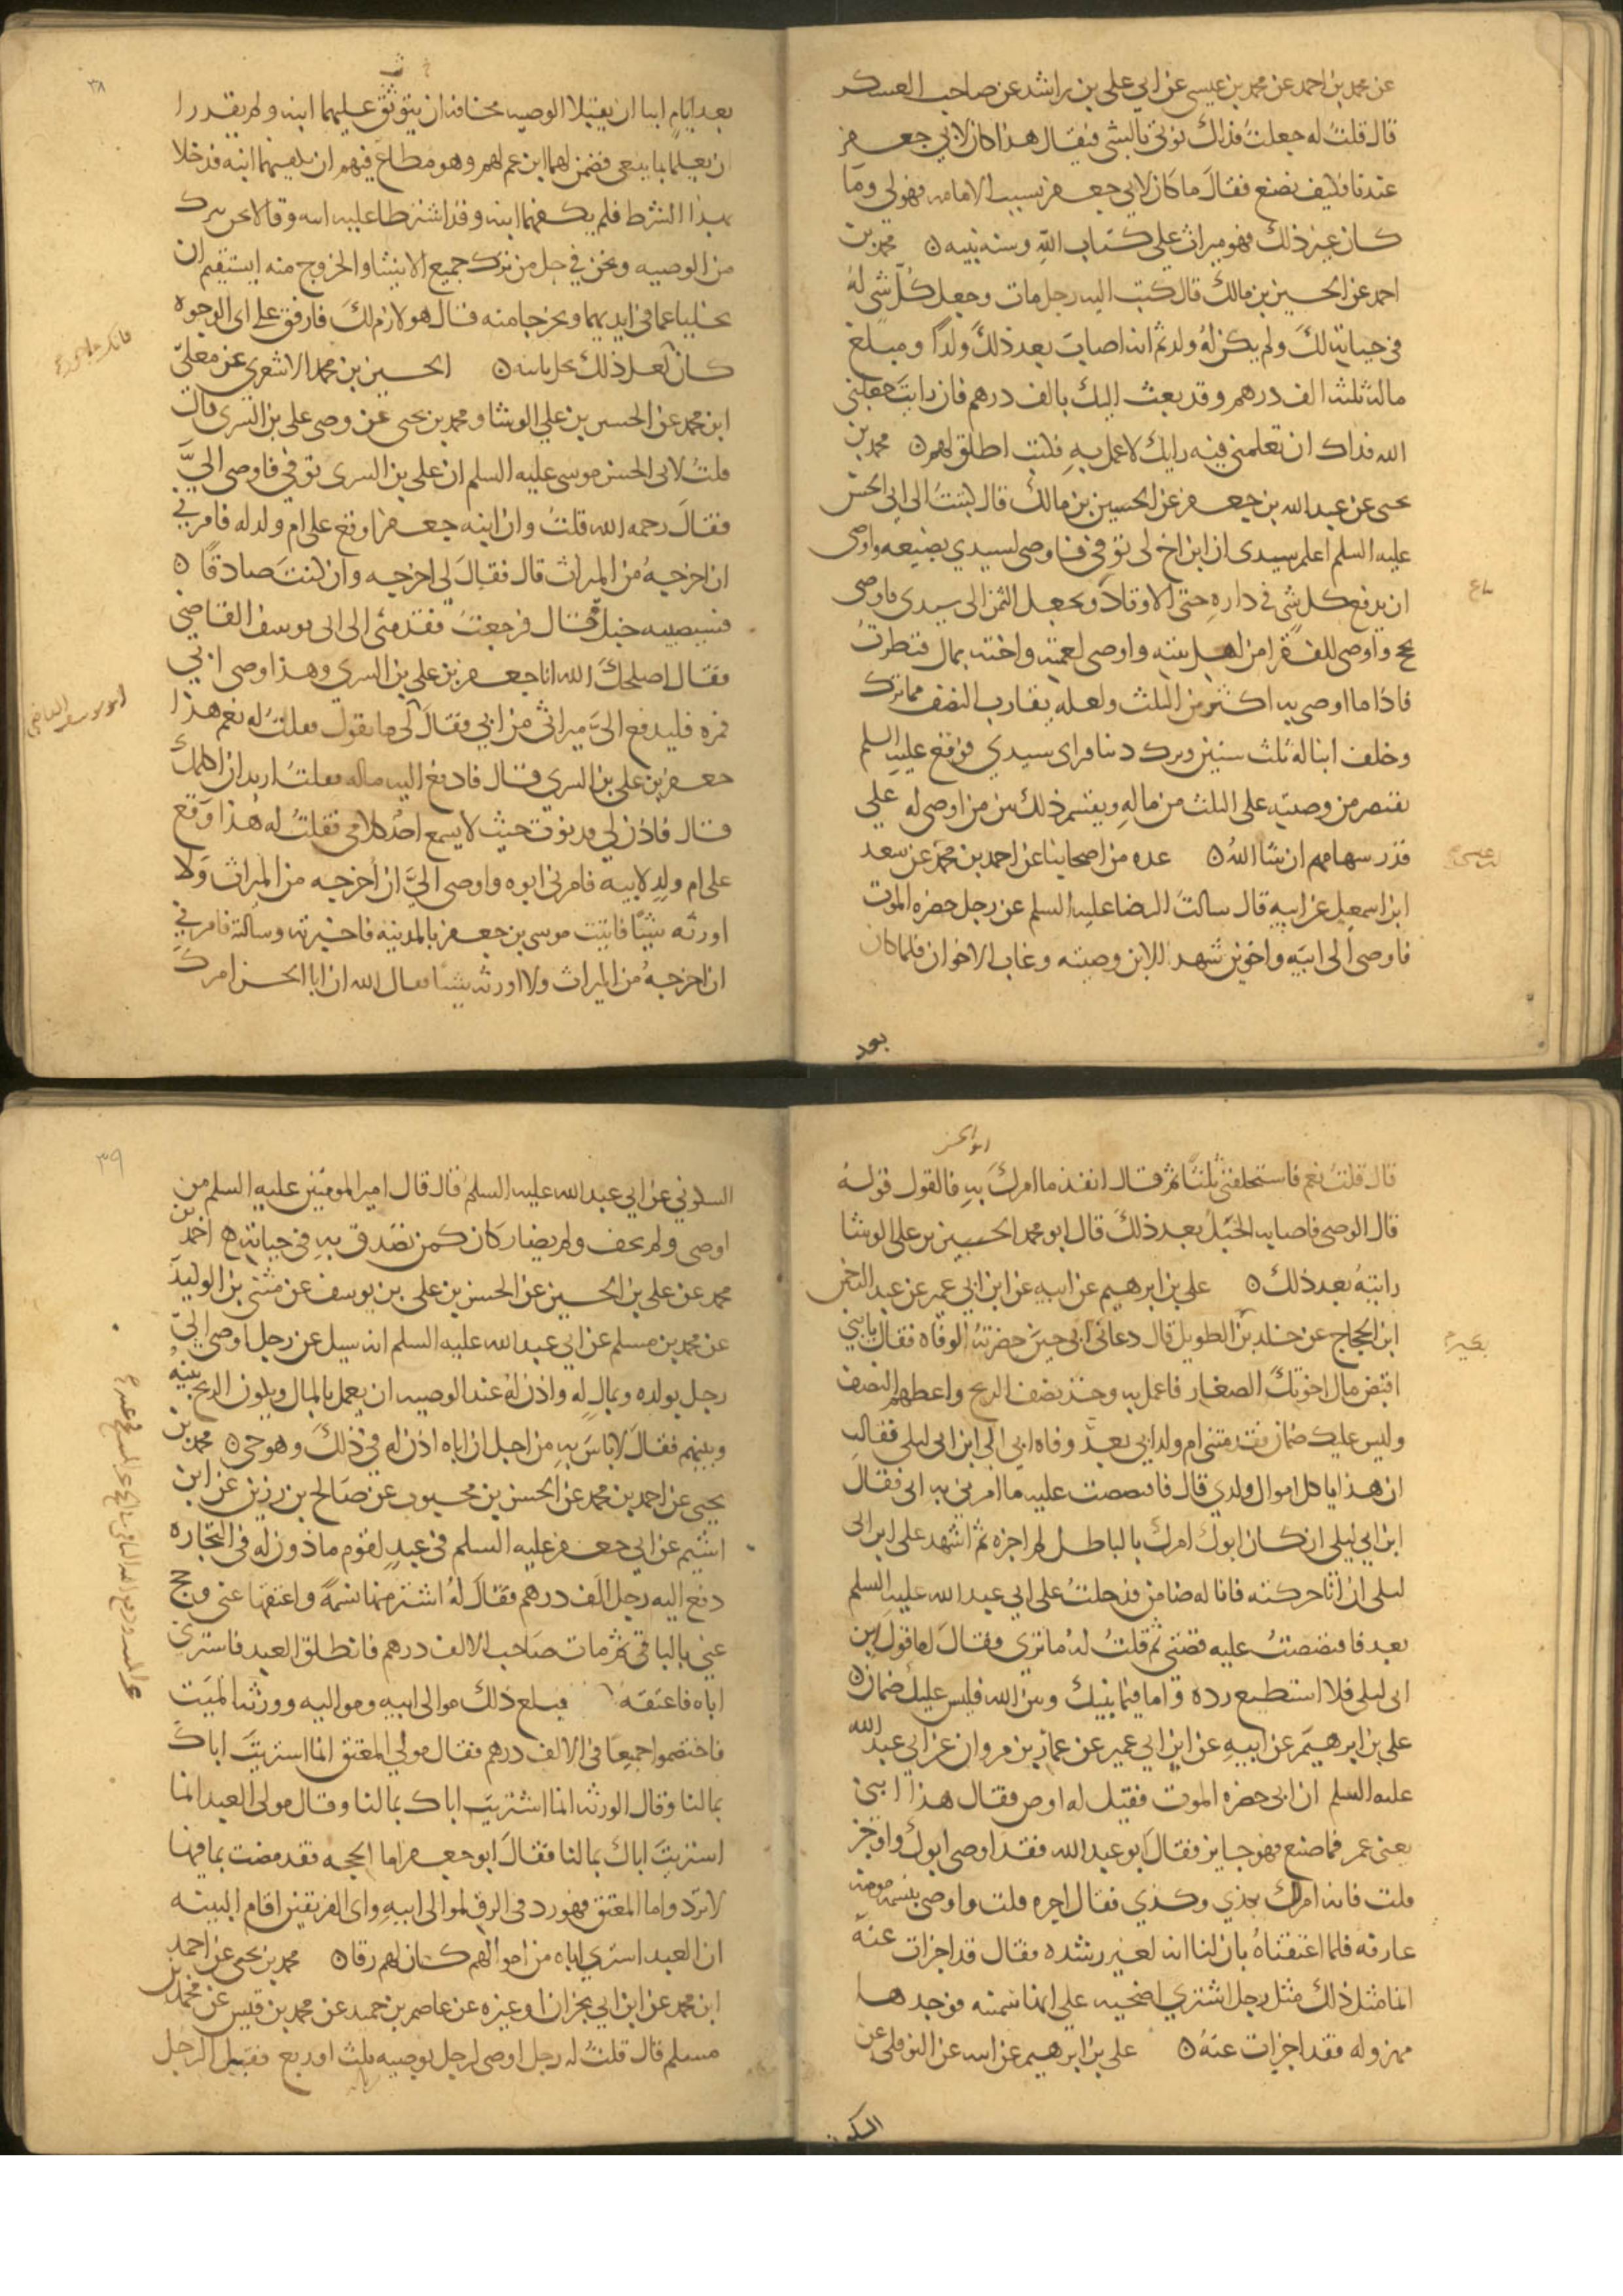 عن محمد بن احمد عن محمد بن عيسى عن ابي علي بن راشد عن صاحب العسكر
قال قلت له جعلت فداك نوتي بالشي فيقال هذا كان لابي جعفر
عندنا فكيف نصنع فقال ما كان لابي جعفر بسبب الامامه فهو لي وما
كان غير ذلك فهو ميراث علي كتاب الله وسنه نبيه ٥ محمد بن
احمد عن الحسين بن مالك قال كتبت اليه رجل مات وجعل كل شي له
في حياته لك ولم يكن له ولد ثم انه اصاب بعد ذلك ولدا ومبلغ
ماله ثلثه الف درهم وقد بعثت اليك بالف درهم فان رايت جعلني
الله فداك ان تعلمني فيه رايك لاعمل به فكتب اطلق لهم ٥ محمد بن
يحيى عن عبد الله بن جعفر عن الحسين بن مالك قال كتبت الى ابي الحسن
عليه السلم اعلم سيدي ان ابن اخ لي توفي فاوصى لسيدي بضيعه واوصى
ان يدفع كل شي في داره حتى الاوتاد ويجعل الثمن الى سيدي واوصى
بحج واوصى للفقرا من اهل بيته واوصى لعمته واخته بمال فنظرت
فاذا ما اوصى به اكثر من الثلث ولعله يقارب النصف مما ترك
وخلف ابنا له ثلث سنين وترك دينا فراى سيدي فوقع عليه السلم
يقتصر من وصيته على الثلث من ماله ويقسم ذلك بين من اوصى له علي
قدر سهامهم ان شا الله ٥ عده من اصحابنا عن احمد بن محمد عن سعد
ابن اسمعيل عن ابيه قال سالت الرضا عليه السلم عن رجل حضره الموت
فاوصى الى ابنه واخوين شهد الابن وصيته وغاب الاخوان فلما كان
بعد
٣٨
بعد ايام ابيا ان يقبلا الوصيه مخافه ان يتوثق عليهما ابنه ولم يقدرا
ان يعملا بما ينبغي فضمن لهما ابن عم لهم وهو مطاع فيهم ان يكفيهما ابنه فدخلا
بهذا الشرط فلم يكفهما ابنه وقد اشترطا عليه ابنه وقالا نحن نبرا
من الوصيه ونحن في حل من ترك جميع الاشيا والخروج منه ايستقيم ان
يخليا عما في ايديهما ويخرجا منه قال هو لازم لك فارفق علي اي الوجوه
كان لعل ذلك يحل بابنه ٥ الحسين بن محمد الاشعري عن معلي
ابن محمد عن الحسن بن علي الوشا ومحمد بن يحيى عن وصي علي بن السري قال
قلت لابي الحسن موسى عليه السلم ان علي بن السري توفي فاوصى الي
فقال رحمه الله قلت وان ابنه جعفرا وقع على ام ولد له فامرني
ان اخرجه من الميراث قال فقال لي اخرجه وان كنت صادقا ٥
فسيصيبه خبل قال فرجعت فقدمني الى ابي يوسف القاضي
فقال اصلحك الله انا جعفر بن علي بن السري وهذا وصي ابي
فمره فليدفع الي ميراثي من ابي فقال لي ما تقول فقلت له نعم هذا
ابو يوسف القاضي
جعفر بن علي بن السري قال فادفع اليه ماله فقلت اريد ان اكلمك
قال فادن لي فدنوت حيث لا يسمع احد كلامي فقلت له هذا وقع
على ام ولد لابيه فامرني ابوه واوصى الي ان اخرجه من الميراث ولا
اورثه شيئا فاتيت موسى بن جعفر بالمدينه فاخبرته وسالته فامرني
ان اخرجه من الميراث ولا اورثه شيئا فقال الله ان ابا الحسن امرك
ابو الحسن
قال قلت نعم فاستحلفني ثلثا ثم قال انفذ ما امرك به فالقول قوله
قال الوصي فاصابه الخبل بعد ذلك قال ابو محمد الحسن بن علي الوشا
رايته بعد ذلك ٥ علي بن ابرهيم عن ابيه عن ابن ابي عمير عن عبد الرحمن
ابن الحجاج عن خلد بن الطويل قال دعاني ابي حين حضرته الوفاه فقال يا بني
اقبض مال اخوتك الصغار فاعمل به وخذ نصف الربح واعطهم النصف
وليس عليك ضمان فقدمتني ام ولد ابي بعد وفاه ابي الي ابن ابي ليلى فقالت
ان هذا ياكل اموال ولدي قال فاقتصصت عليه ما امرني به ابي فقال
ابن ابي ليلى ان كان ابوك امرك بالباطل لم اجزه ثم اشهد علي ابن ابي
ليلى ان انا حركته فانا له ضامن فدخلت على ابي عبد الله عليه السلم
بعد فاقتصصت عليه قصتي ثم قلت له ما ترى فقال اما قول ابن
ابي ليلى فلا استطيع رده واما فيما بينك وبين الله فليس عليك ضمان ٥
علي بن ابرهيم عن ابيه عن ابن ابي عمير عن عمار بن مروان عن ابي عبد الله
عليه السلم ان ابي حضره الموت فقيل له اوص فقال هذا ابني
يعني عمر فما صنع فهو جايز فقال ابو عبد الله فقد اوصى ابوك واوجز
قلت فانه امر لك بكذي وكذي فقال اجره قلت واوصى بنسمه مومنه
عارفه فلما اعتقناه بان لنا انه لغير رشده فقال قد اجزات عنه
انما مثل ذلك مثل رجل اشترى اضحيه على انها سمينه فوجدها
مهزوله فقد اجزات عنه ٥ علي بن ابرهيم عن ابيه عن النوفلي عن
السكوني
٣٩
السكوني عن ابي عبد الله عليه السلم قال قال امير المومنين عليه السلم من
اوصى ولم يحف ولم يضار كان كمن تصدق به في حياته ه احمد بن
محمد عن علي بن الحسين عن الحسن بن علي بن يوسف عن مثنى بن الوليد
عن محمد بن مسلم عن ابي عبد الله عليه السلم انه سيل عن رجل اوصى الي
رجل بولده وبمال له واذن له عند الوصيه ان يعمل بالمال ويكون الربح بينه
وبينهم فقال لا باس به من اجل ان اباه اذن له في ذلك وهو حي ٥ محمد بن
يحيى عن احمد بن محمد عن الحسن بن محبوب عن صالح بن رزين عن ابن
اشيم عن ابي جعفر عليه السلم في عبد لقوم ماذون له في التجاره
دفع اليه رجل الف درهم فقال له اشتر منها نسمة واعتقها عني وحج
عني بالباقي ثم مات صاحب الالف درهم فانطلق العبد فاشترى
اباه فاعتقه فبلغ ذلك موالي ابيه ومواليه وورثه الميت
فاختصموا جميعا في الالف درهم فقال موالي المعتق انما اشتريت اباك
بمالنا وقال الورثه انما اشتريت اباك بمالنا وقال مولى العبد انما
اشتريت اباك بمالنا فقال ابو جعفر اما الحجه فقد مضت بما فيها
لا ترد واما المعتق فهو رد في الرق لموالي ابيه واي الفريقين اقام البينه
ان العبد اشترى اباه من اموالهم كان لهم رقا ٥ محمد بن يحيى عن احمد
ابن محمد عن ابن ابي نجران او غيره عن عاصم بن حميد عن محمد بن قيس عن محمد بن
مسلم قال قلت له رجل اوصى لرجل بوصيه بثلث او ربع فقتل الرجل